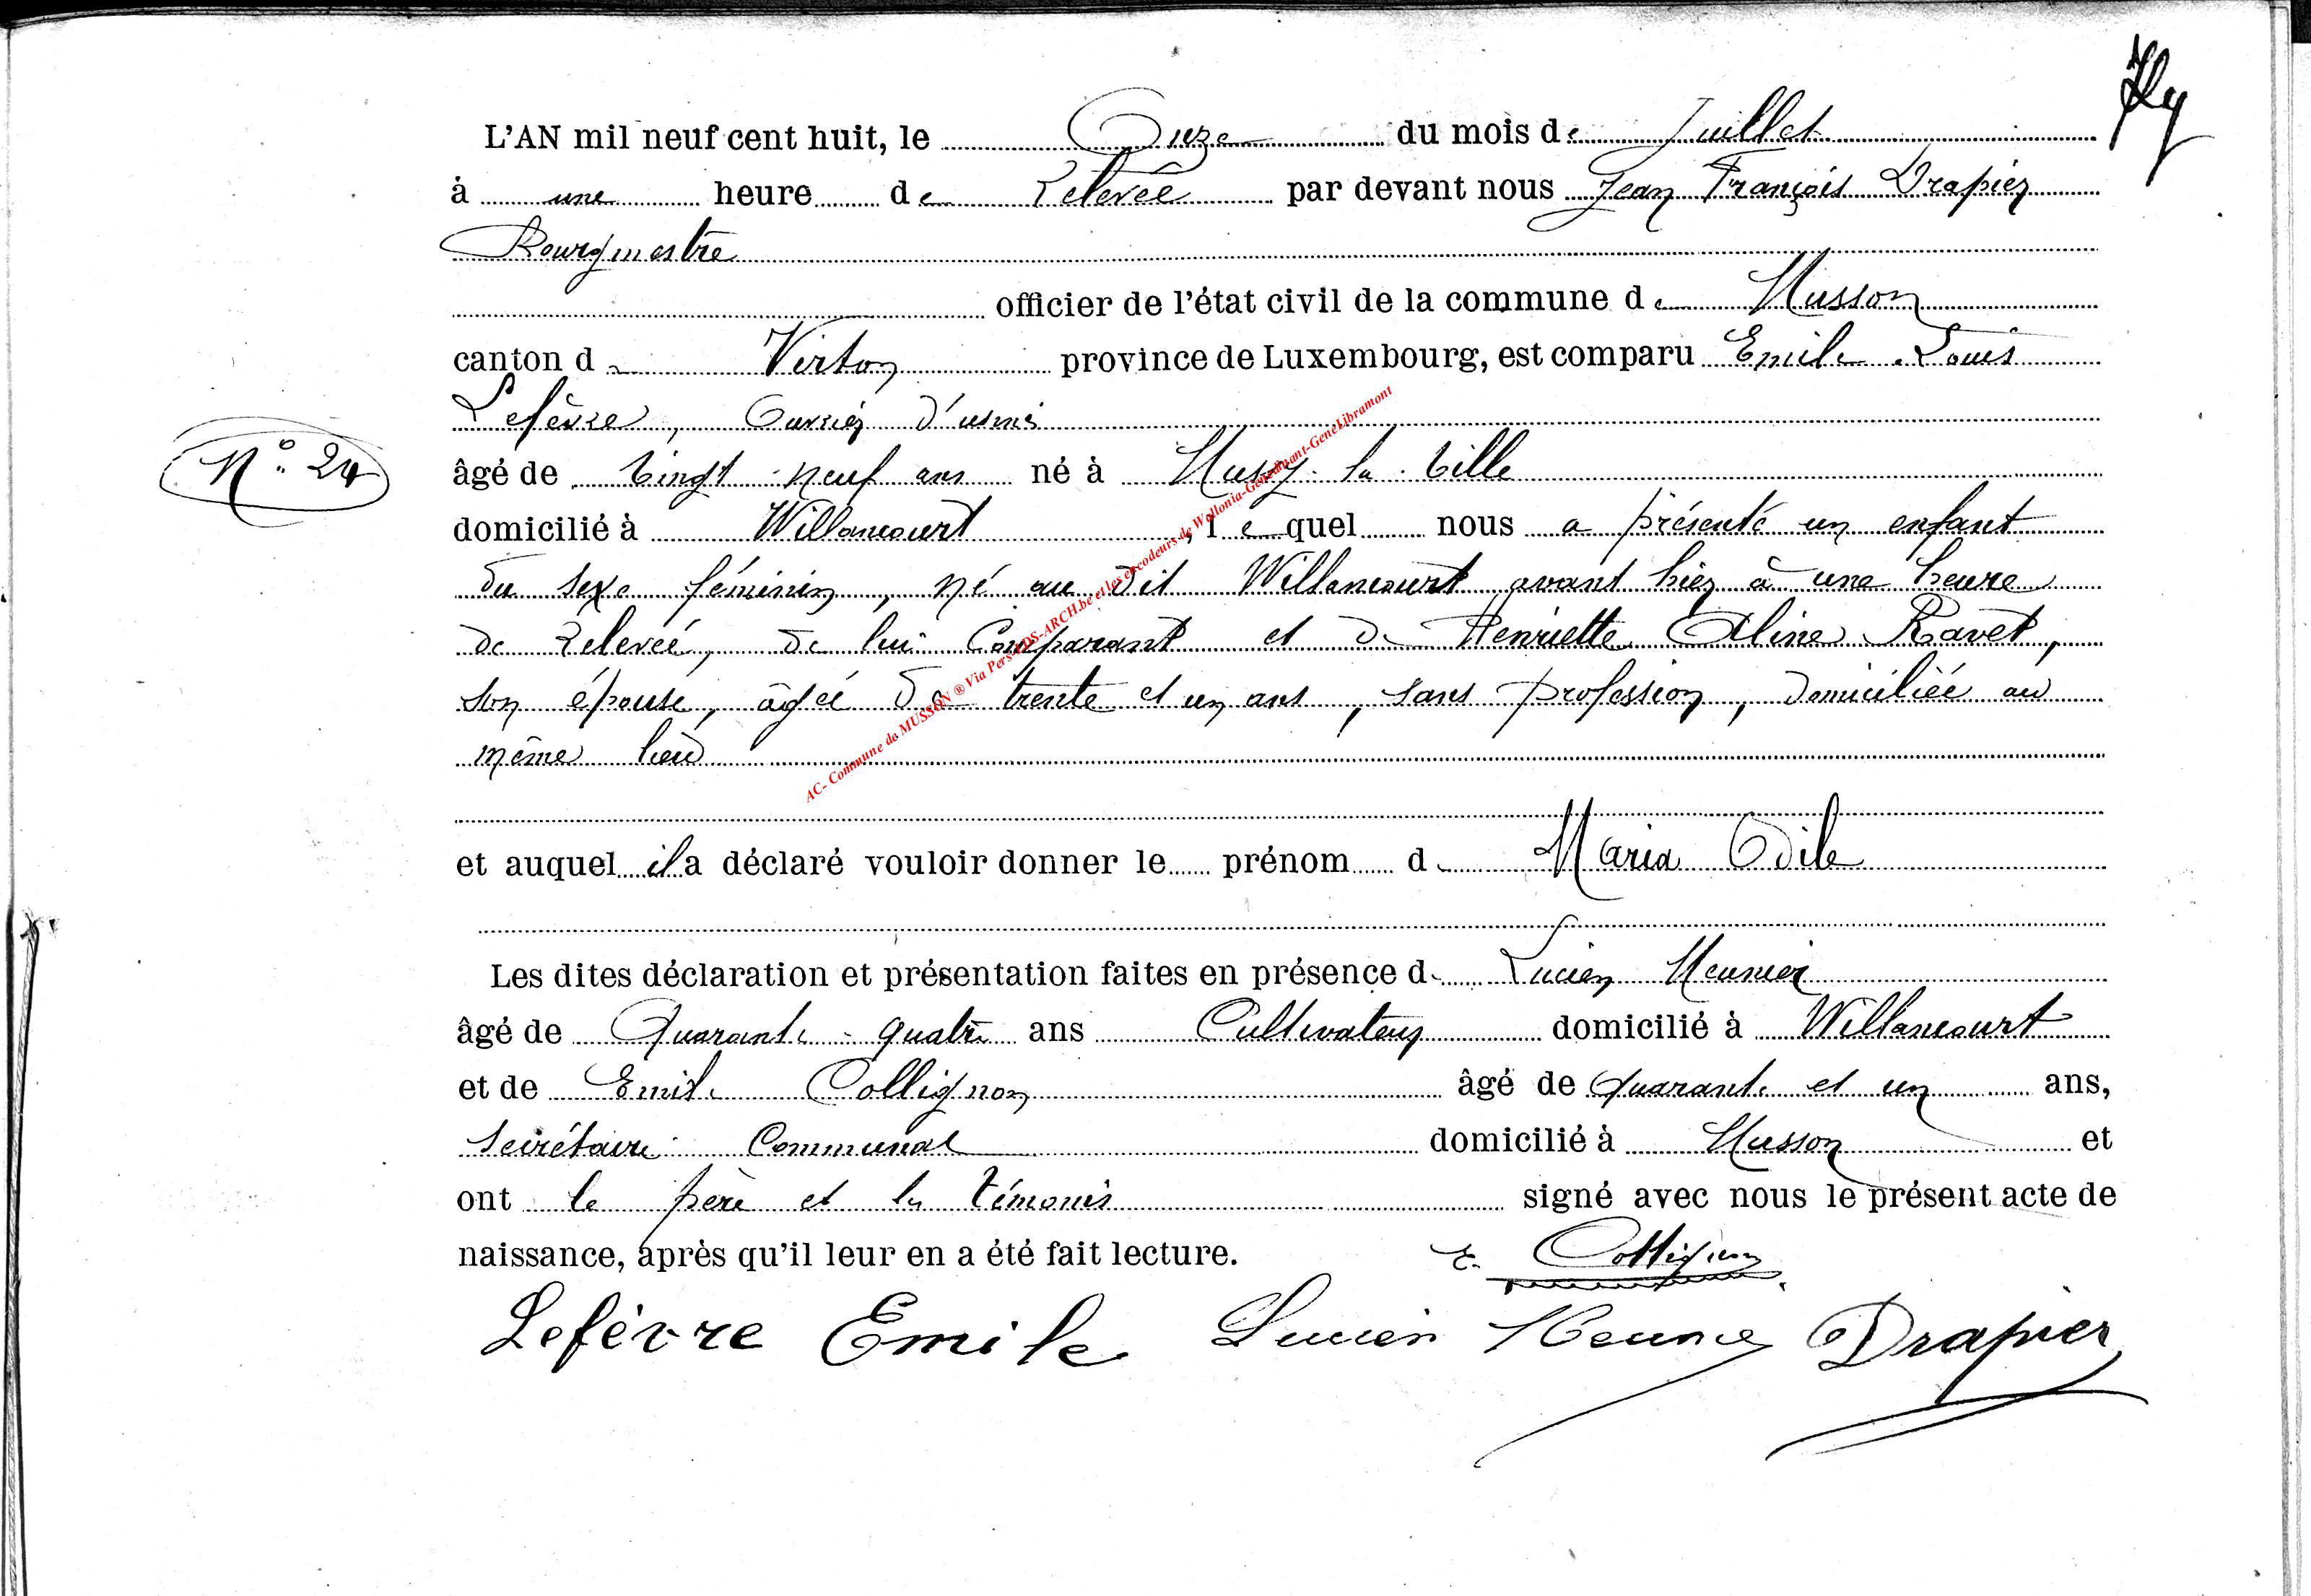 L'AN mil neuf cent huit, le Onze du mois de Juillet
à une heure de Relevée par devant nous Jean François Drapier
Bourgmestre
officier de l'état civil de la commune de Musson
canton de Virton province de Luxembourg, est comparu Emile Louis
Lefèvre, Ouvrier d'usine
N° 24
âgé de vingt-neuf ans né à Mussy-la-Ville
domicilié à Willancourt, lequel nous a présenté un enfant
du sexe féminin, né au dit Willancourt avant hier à une heure
de Relevée, de lui Comparant et de Henriette Aline Ravet,
son épouse, âgée de trente et un ans, sans profession, domiciliée au
même lieu
et auquel il a déclaré vouloir donner le prénom de Maria Odile
Les dites déclaration et présentation faites en présence de Lucien Meunier
âgé de Quarante-quatre ans Cultivateur domicilié à Willancourt
et de Emile Collignon âgé de Quarante et un ans,
secrétaire Communal domicilié à Musson et
ont le père et les témoins signé avec nous le présent acte de
naissance, après qu'il leur en a été fait lecture. E. Collignon
Lefèvre Emile Lucien Meunier Drapier
AC- Commune de MUSSON ® Via Pers-EDS-ARCH.be et les encodeurs de Wallonia-Genedinant-GeneLibramont